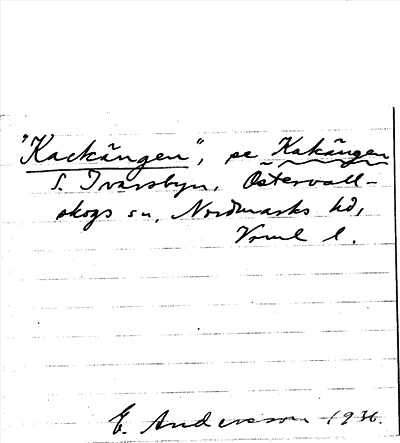 "Kackängen", se Kakängen
S. Ivarsbyn, Östervall-
skogs sn, Nordmarks hd,
Vrml l.
E. Andersson 1936.